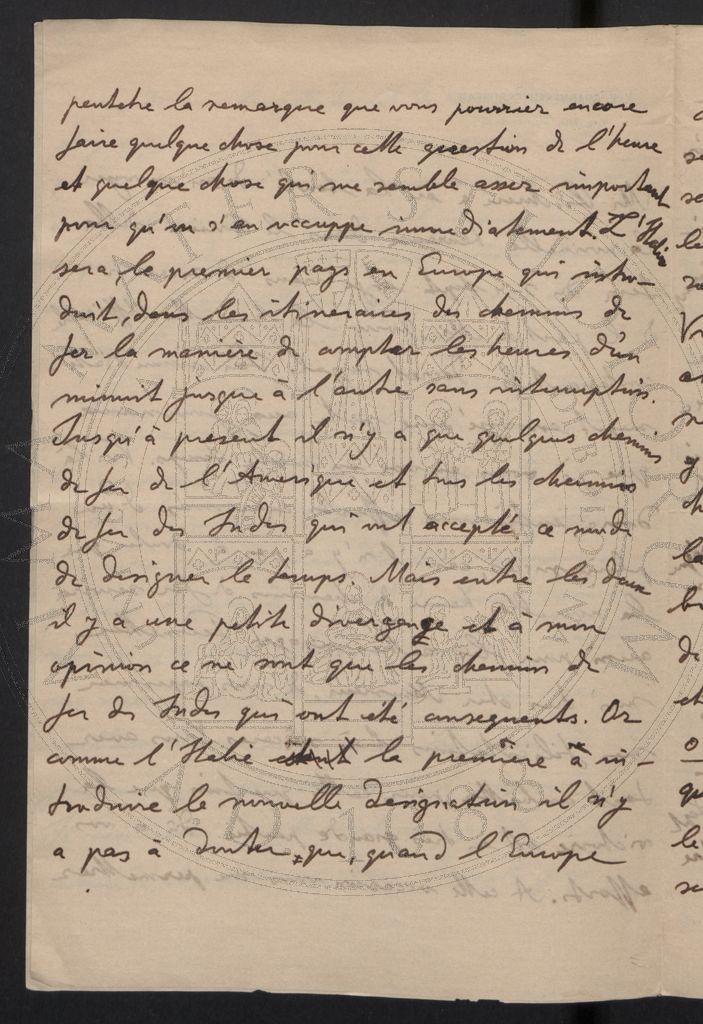 peutetre la remarque que vous pourrier encore
faire quelque chose pour cette question de l'heure
et quelque chose qui me semble asser important
pour qu'on s'en occuppe immediatement. L'Italie
sera, le premier pays en Europe qui intro-
duit, dans les itineraires des chemins de
fer la manière de compter les heures d'un
minuit jusque à l'autre sans interruption.
Jusqu'à present il n'y a que quelques chemins
de fer de l'Amerique et tous les chemins
de fer des Indes qui ont accepté ce mode
de designer le temps. Mais entre les deux
il y a une petite divergence et à mon
opinion ce ne sont que les chemins de
fer des Indes qui ont eté consequents. Or
comme l'Italie la première à in-
troduire le nouvelle designation il n'y
a pas à douter, que, quand l'Europe